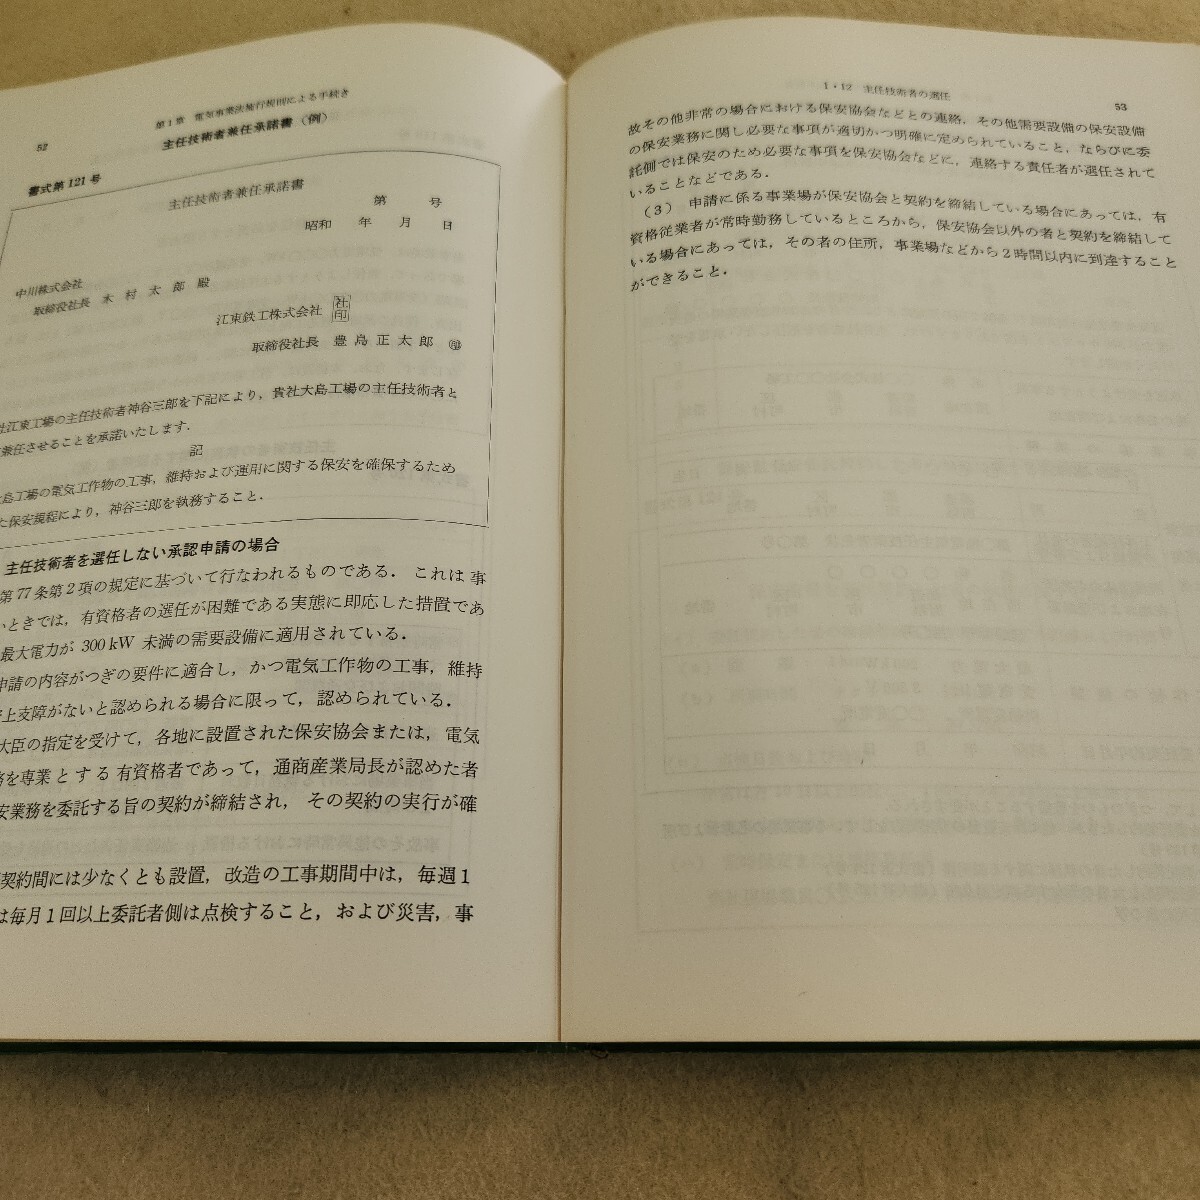 52
第1章 電気事業法施行規則による手続き
主任技術者兼任承諾書（例）
書式第121号
主任技術者兼任承諾書
第 号
昭和 年 月 日
中川株式会社
取締役社長 木村太郎 殿
江東鉄工株式会社 社印
取締役社長 豊島正太郎 ㊞
社江東工場の主任技術者神谷三郎を下記により，貴社大島工場の主任技術者と
兼任させることを承諾いたします．
記
島工場の電気工作物の工事，維持および運用に関する保安を確保するため
た保安規程により，神谷三郎を執務すること．
主任技術者を選任しない承認申請の場合
第77条第2項の規定に基づいて行なわれるものである．これは事
いときでは，有資格者の選任が困難である実態に即応した措置であ
最大電力が 300 kW 未満の需要設備に適用されている．
申請の内容がつぎの要件に適合し，かつ電気工作物の工事，維持
上支障がないと認められる場合に限って，認められている．
大臣の指定を受けて，各地に設置された保安協会または，電気
務を専業とする有資格者であって，通商産業局長が認めた者
安業務を委託する旨の契約が締結され，その契約の実行が確
契約間には少なくとも設置，改造の工事期間中は，毎週1
は毎月1回以上委託者側は点検すること，および災害，事
1・12 主任技術者の選任
53
故その他非常の場合における保安協会などとの連絡，その他需要設備の保安設備
の保安業務に関し必要な事項が適切かつ明確に定められていること，ならびに委
託側では保安のため必要な事項を保安協会などに，連絡する責任者が選任されて
いることなどである．
（3） 申請に係る事業場が保安協会と契約を締結している場合にあっては，有
資格従業者が常時勤務しているところから，保安協会以外の者と契約を締結して
いる場合にあっては，その者の住所，事業場などから2時間以内に到達すること
ができること．